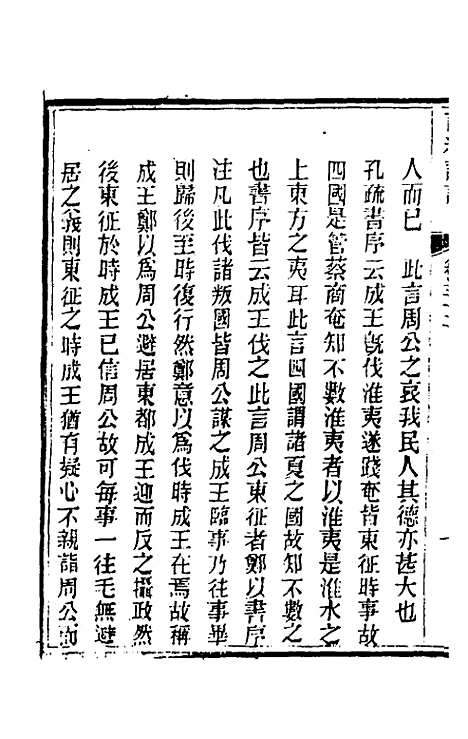 人而已　此言周公之哀我民人其德亦甚大也
孔疏書序云成王旣伐淮夷遂踐奄皆東征時事故
四國是管蔡商奄知不數淮夷者以淮夷是淮水之
上東方之夷耳此言四國謂諸夏之國故知不數之
也書序皆云成王伐之此言周公東征者鄭以書序
注凡此伐諸叛國皆周公謀之成王臨事乃往事畢
則歸後至時復行然鄭意以爲伐時成王在焉故稱
成王鄭以爲周公避居東都成王迎而反之攝政然
後東征於時成王已信周公故可每事一往毛無避
居之義則東征之時成王猶有疑心不親詣周公而